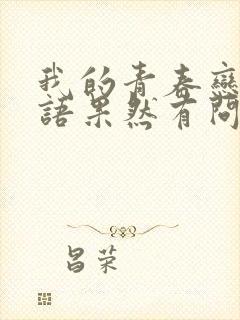 我的青春戀
語果然有問
昌荣